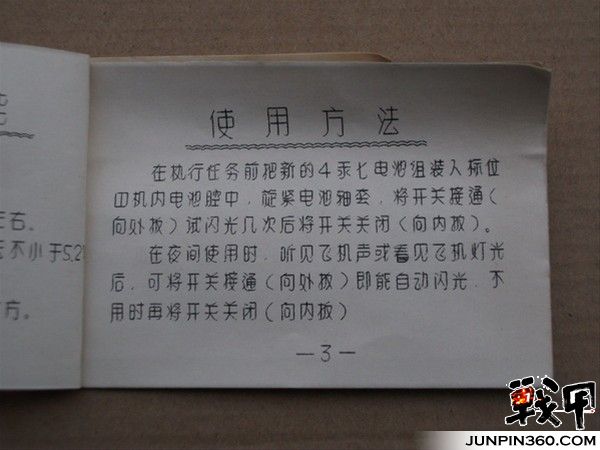 右。
不小于5.2
方。
使用方法
在执行任务前把新的4汞七电池组装入标位
机内电池腔中，旋紧电池轴套，将开关接通（
向外扳）试闪光几次后将开关关闭（向内扳）。
在夜间使用时，听见飞机声或看见飞机灯光
后，可将开关接通（向外扳）即能自动闪光，不
用时再将开关关闭（向内扳）
—3—
戰甲
JUNPIN360.COM